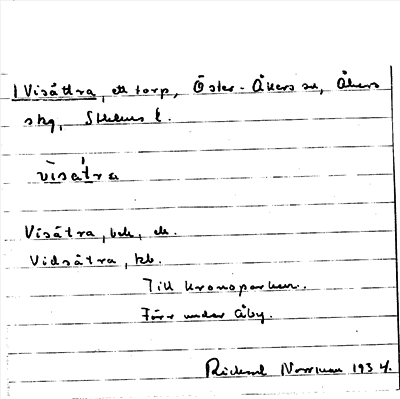 1 Visättra, ett torp, Öster-Åkers sn, Åkers
skg, Sthlms l.
visätra
Visätra, bek, ek.
Vidsätra, kb.
Till Kronoparken.
Förr under Åby.
Rickard Norrman 1934.